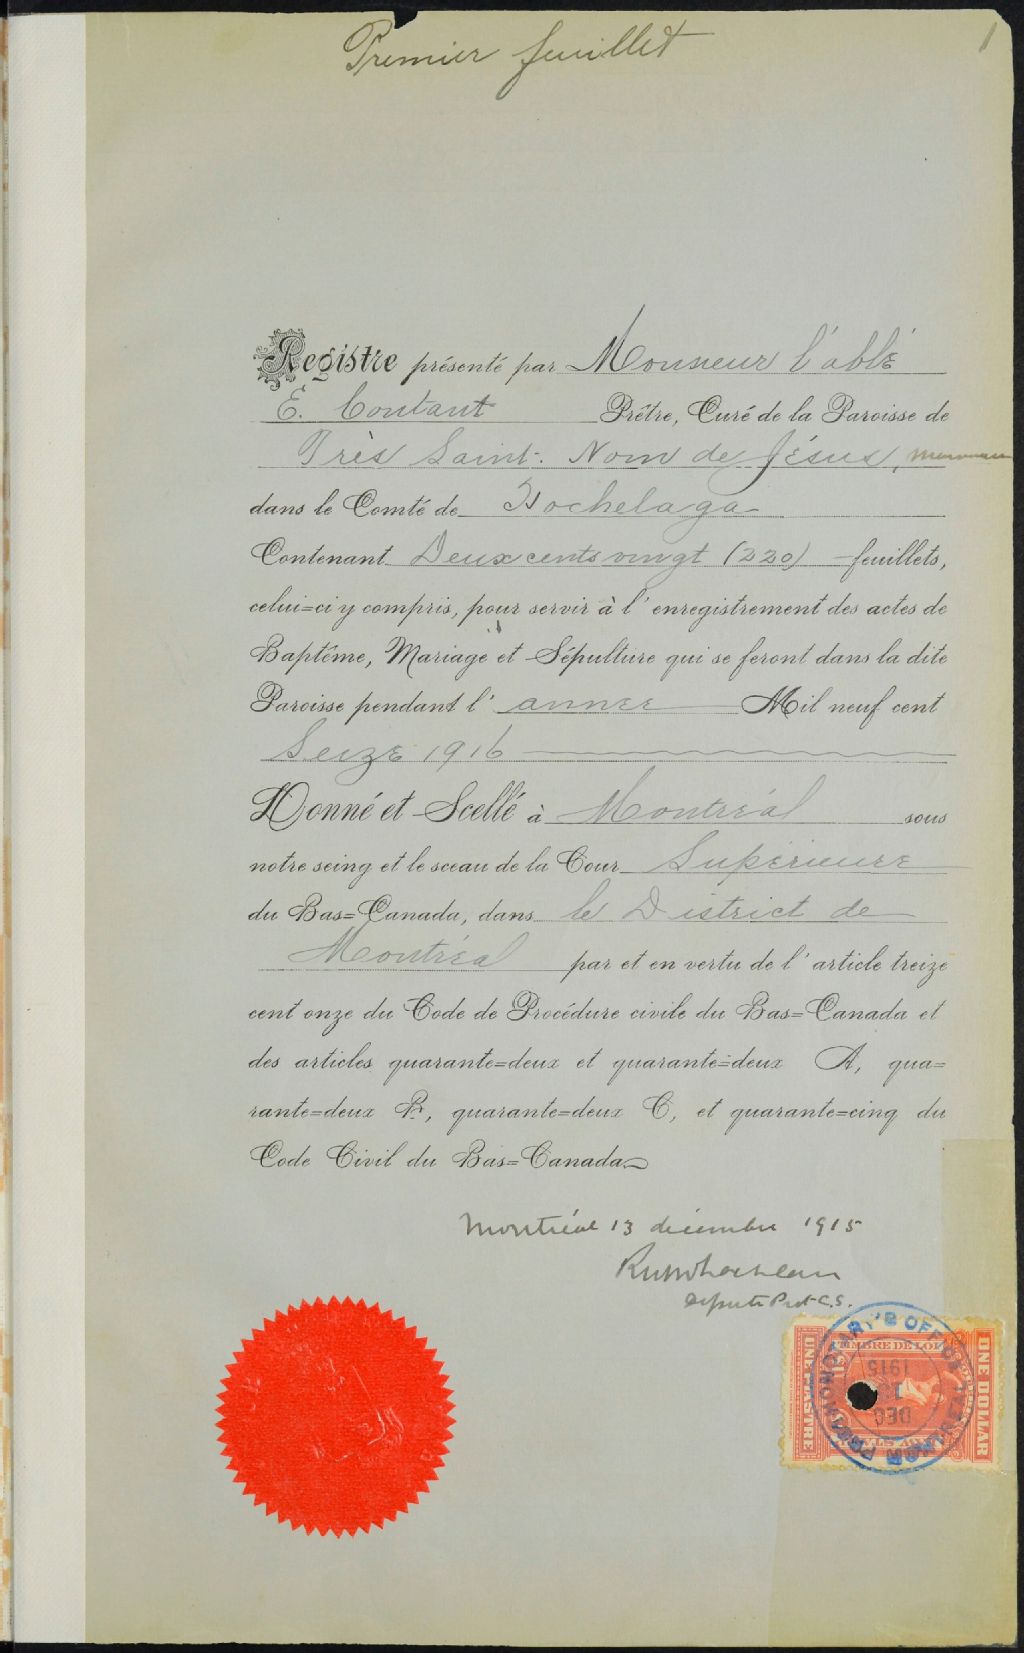 Premier feuillet
1
Registre présenté par Monsieur l'abbé
E. Coutant Prêtre, Curé de la Paroisse de
Très Saint-Nom de Jésus,
dans le Comté de Hochelaga
Contenant Deux cents vingt (220) feuillets,
celui=ci y compris, pour servir à l'enregistrement des actes de
Baptême, Mariage et Sépulture qui se feront dans la dite
Paroisse pendant l'année Mil neuf cent
Seize 1916
Donné et Scellé à Montréal sous
notre seing et le sceau de la Cour Supérieure
du Bas=Canada, dans le District de
Montréal par et en vertu de l'article treize
cent onze du Code de Procédure civile du Bas=Canada et
des articles quarante=deux et quarante=deux A, qua=
rante=deux B, quarante=deux C, et quarante=cinq du
Code Civil du Bas=Canada
Montréal 13 décembre 1915
Député Prot. C.S.
PROTHONOTARY'S OFFICE MONTREAL
DEC 13 1915
TIMBRE DE LOI
ONE DOLLAR
UNE PIASTRE